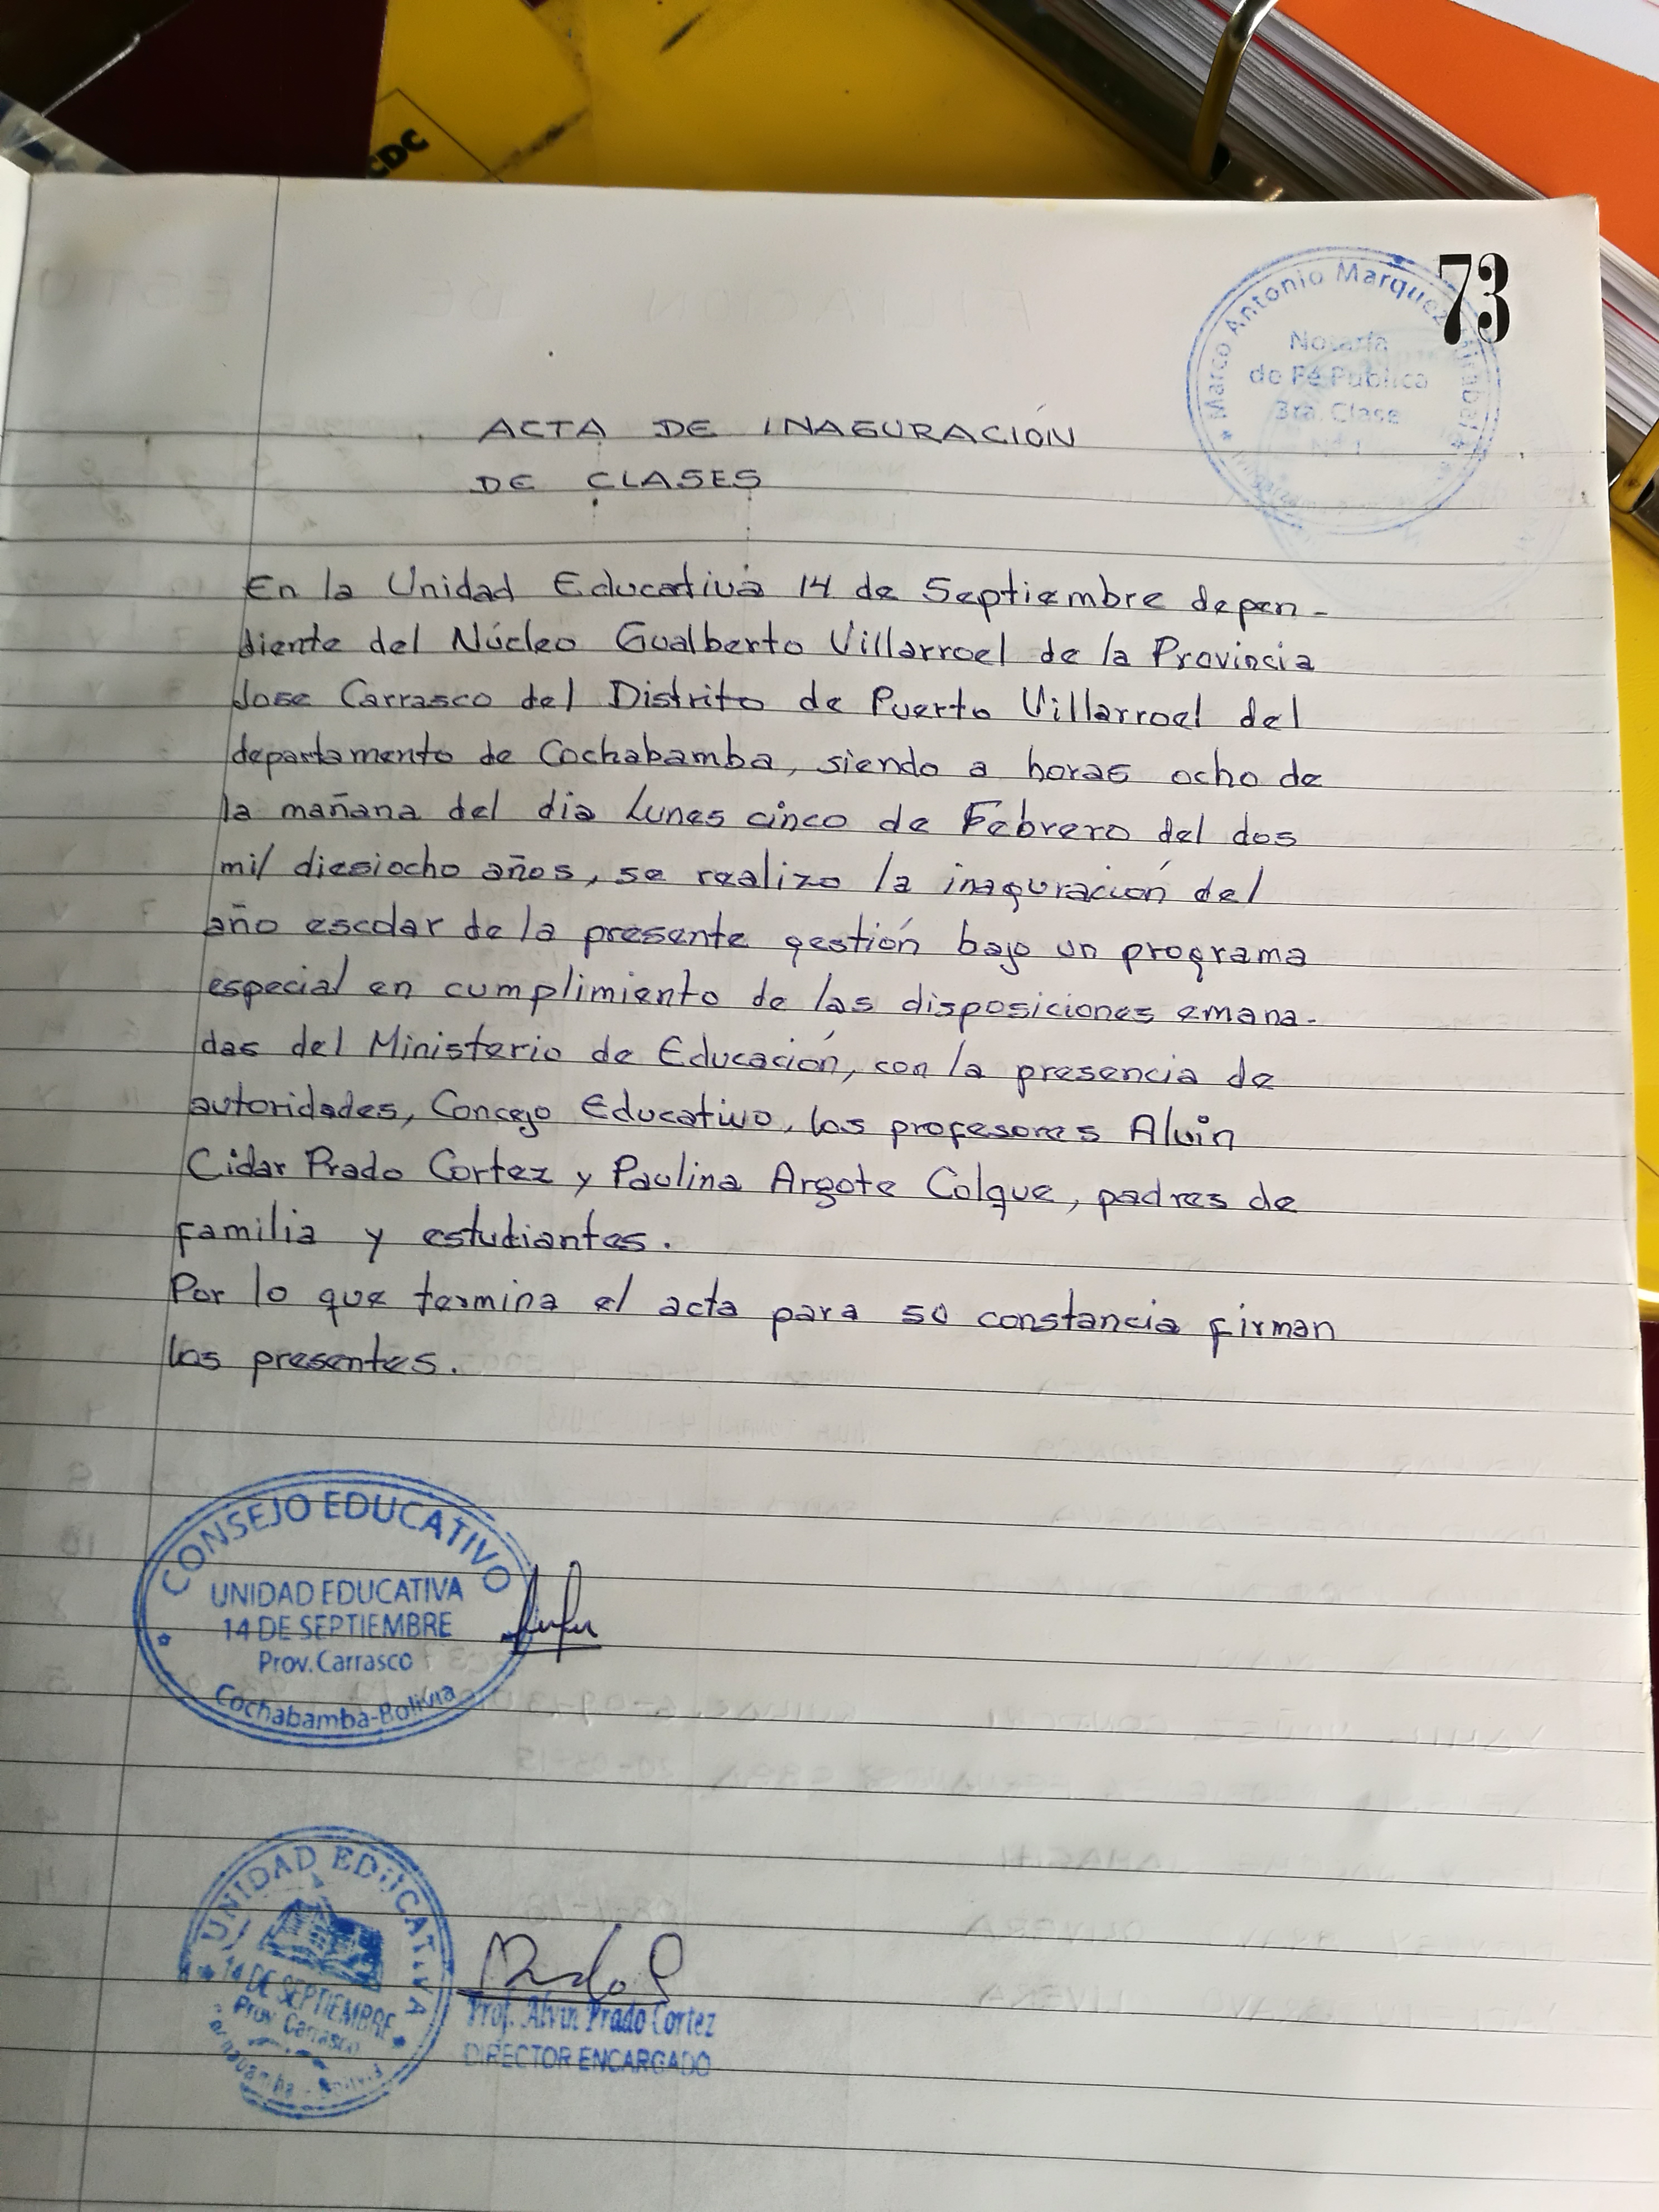 CDC
73
Marco Antonio Marquez Mirabal
Notaría
de Fé Publica
3ra. Clase
Nº 1
ACTA DE INAGURACIÓN
DE CLASES
En la Unidad Educativa 14 de Septiembre depen-
diente del Núcleo Gualberto Villarroel de la Provincia
Jose Carrasco del Distrito de Puerto Villarroel del
departamento de Cochabamba, siendo a horas ocho de
la mañana del dia Lunes cinco de Febrero del dos
mil diesiocho años, se realizo la inaguración del
año escolar de la presente gestión bajo un programa
especial en cumplimiento de las disposiciones emana-
das del Ministerio de Educación, con la presencia de
autoridades, Concejo Educativo, los profesores Alvin
Cidar Prado Cortez y Paulina Argote Colque, padres de
familia y estudiantes.
Por lo que termina el acta para su constancia firman
los presentes.
CONSEJO EDUCATIVO
UNIDAD EDUCATIVA
14 DE SEPTIEMBRE
Prov. Carrasco
Cochabamba-Bolivia
UNIDAD EDUCATIVA
14 DE SEPTIEMBRE
Prov. Carrasco
Prof. Alvin Prado Cortez
DIRECTOR ENCARGADO